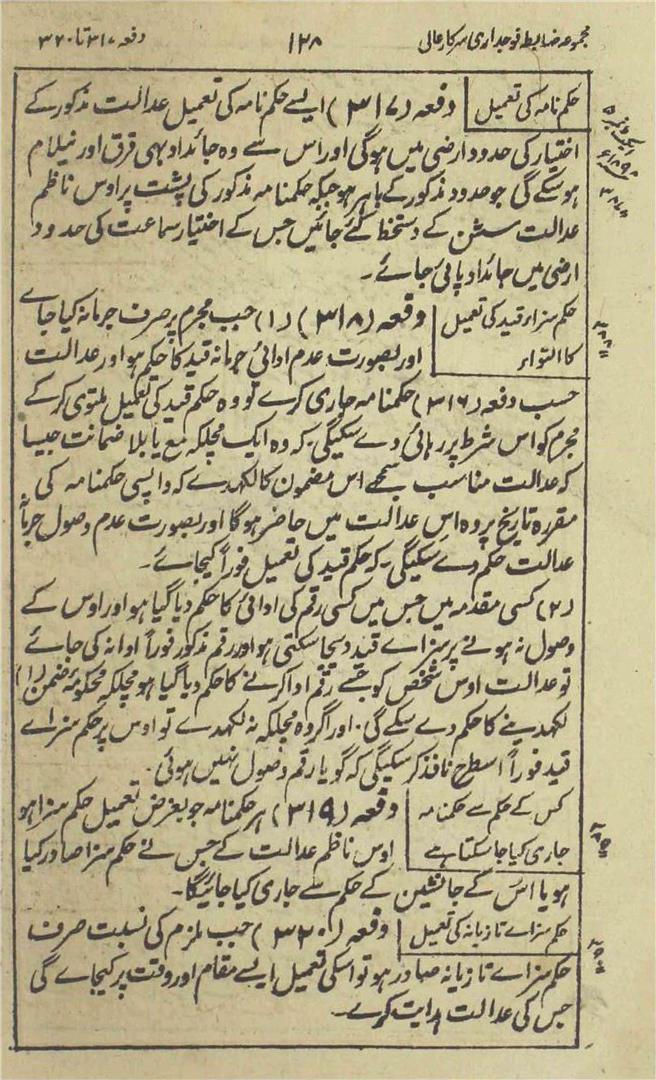 مجموعہ ضابطہ فوجداری سرکار عالی
۱۲۸
دفعہ ۳۱۷ تا ۳۲۰
حکم نامہ کی تعمیل
دفعہ (۳۱۷) ایسے حکم نامہ کی تعمیل عدالت مذکور کے
اختیار کی حدود ارضی میں ہوگی اور اس سے وہ جائداد بھی قرق اور نیلام
ہو سکے گی جو حدود مذکور کے باہر ہو جبکہ حکمنامہ مذکور کی پشت پر اوس ناظم
عدالت سشن کے دستخط کئے جائیں جس کے اختیار سماعت کی حدود
ارضی میں جائداد پائی جائے۔
حکم سزاء قید کی تعمیل
کا التواء
دفعہ (۳۱۸) (۱) جب مجرم پر صرف جرمانہ کیا جاے
اور بصورت عدم ادائی جرمانہ قید کا حکم ہو اور عدالت
حسب دفعہ (۳۱۶) حکمنامہ جاری کرے تو وہ حکم قید کی تعمیل ملتوی کرکے
مجرم کو اس شرط پر رہائی دے سکیگی۔ کہ وہ ایک مچلکہ مع یا بلا ضمانت جیسا
کہ عدالت مناسب سمجھے اس مضمون کا لکھدے کہ واپسی حکمنامہ کی
مقررہ تاریخ پر وہ اس عدالت میں حاضر ہوگا اور بصورت عدم وصول جرمانہ
عدالت حکم دے سکیگی۔ کہ حکم قید کی تعمیل فوراً کیجائے۔
(۲) کسی مقدمہ میں جس میں کسی رقم کی ادائی کا حکم دیا گیا ہو اور اوس کے
وصول نہ ہونے پر سزاے قید دیجا سکتی ہو اور رقم مذکور فوراً ادا نہ کی جائے
تو عدالت اوس شخص کو جسے رقم ادا کرنے کا حکم دیا گیا ہو مچلکہ محکومۂ ضمن (۱)
لکھدینے کا حکم دے سکے گی۔ اور اگر وہ مچلکہ نہ لکھدے تو اوس پر حکم سزاے
قید فوراً اسطرح نافذ کر سکیگی کہ گویا رقم وصول نہیں ہوئی۔
کس کے حکم سے حکمنامہ
جاری کیا جا سکتا ہے
دفعہ (۳۱۹) ہر حکمنامہ جو بغرض تعمیل حکم سزا ہو
اوس ناظم عدالت کے جس نے حکم سزا صادر کیا
ہو یا اس کے جانشین کے حکم سے جاری کیا جائیگا۔
حکم سزاے تازیانہ کی تعمیل
دفعہ (۳۲۰) جب ملزم کی نسبت صرف
حکم سزاے تازیانہ صادر ہو تو اسکی تعمیل ایسے مقام اور وقت پر کیجاے گی
جس کی عدالت ہدایت کرے۔